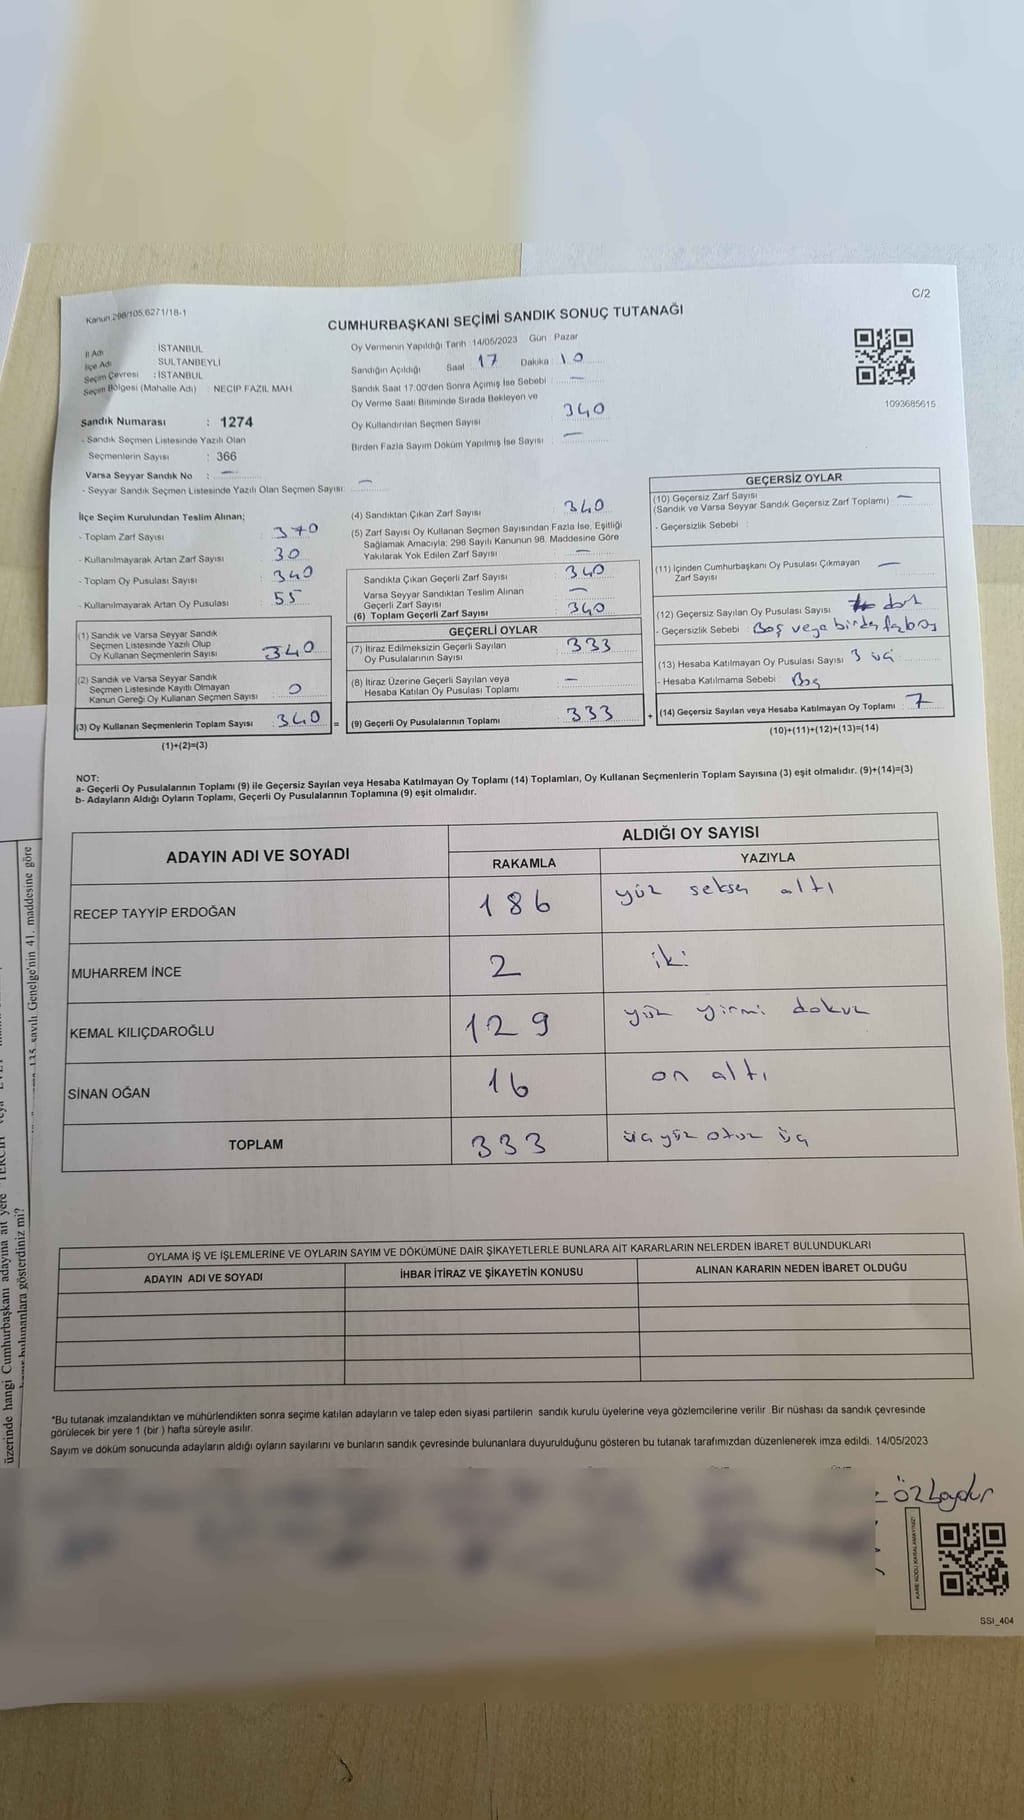 Kanun 298/105,6271/18-1
C/2
CUMHURBAŞKANI SEÇİMİ SANDIK SONUÇ TUTANAĞI
İl Adı : İSTANBUL
İlçe Adı : SULTANBEYLİ
Seçim Çevresi : İSTANBUL
Seçim Bölgesi (Mahalle Adı) : NECİP FAZIL MAH.
Sandık Numarası : 1274
- Sandık Seçmen Listesinde Yazılı Olan
Seçmenlerin Sayısı : 366
Varsa Seyyar Sandık No : —
- Seyyar Sandık Seçmen Listesinde Yazılı Olan Seçmen Sayısı: —
Oy Vermenin Yapıldığı Tarih : 14/05/2023 Gün : Pazar
Sandığın Açıldığı Saat 17 Dakika : 10
Sandık Saat 17.00'den Sonra Açımış İse Sebebi : —
Oy Verme Saati Bitiminde Sırada Bekleyen ve
Oy Kullandırılan Seçmen Sayısı : 340
Birden Fazla Sayım Döküm Yapılmış İse Sayısı : —
1093685615
İlçe Seçim Kurulundan Teslim Alınan;
- Toplam Zarf Sayısı : 370
- Kullanılmayarak Artan Zarf Sayısı : 30
- Toplam Oy Pusulası Sayısı : 340
- Kullanılmayarak Artan Oy Pusulası : 55
(1) Sandık ve Varsa Seyyar Sandık
Seçmen Listesinde Yazılı Olup
Oy Kullanan Seçmenlerin Sayısı : 340
(2) Sandık ve Varsa Seyyar Sandık
Seçmen Listesinde Kayıtlı Olmayan
Kanun Gereği Oy Kullanan Seçmen Sayısı : 0
(3) Oy Kullanan Seçmenlerin Toplam Sayısı : 340
(1)+(2)=(3)
(4) Sandıktan Çıkan Zarf Sayısı : 340
(5) Zarf Sayısı Oy Kullanan Seçmen Sayısından Fazla İse, Eşitliği
Sağlamak Amacıyla; 298 Sayılı Kanunun 98. Maddesine Göre
Yakılarak Yok Edilen Zarf Sayısı : —
Sandıkta Çıkan Geçerli Zarf Sayısı : 340
Varsa Seyyar Sandıktan Teslim Alınan
Geçerli Zarf Sayısı : —
(6) Toplam Geçerli Zarf Sayısı : 340
GEÇERLİ OYLAR
(7) İtiraz Edilmeksizin Geçerli Sayılan
Oy Pusulalarının Sayısı : 333
(8) İtiraz Üzerine Geçerli Sayılan veya
Hesaba Katılan Oy Pusulası Toplamı : —
= (9) Geçerli Oy Pusulalarının Toplamı : 333
GEÇERSİZ OYLAR
(10) Geçersiz Zarf Sayısı
(Sandık ve Varsa Seyyar Sandık Geçersiz Zarf Toplamı) : —
- Geçersizlik Sebebi :
(11) İçinden Cumhurbaşkanı Oy Pusulası Çıkmayan
Zarf Sayısı : —
(12) Geçersiz Sayılan Oy Pusulası Sayısı : dört
- Geçersizlik Sebebi : Boş veya birden fazla oy
(13) Hesaba Katılmayan Oy Pusulası Sayısı : 3 üç
- Hesaba Katılmama Sebebi : Boş
+ (14) Geçersiz Sayılan veya Hesaba Katılmayan Oy Toplamı : 7
(10)+(11)+(12)+(13)=(14)
NOT:
a- Geçerli Oy Pusulalarının Toplamı (9) ile Geçersiz Sayılan veya Hesaba Katılmayan Oy Toplamı (14) Toplamları, Oy Kullanan Seçmenlerin Toplam Sayısına (3) eşit olmalıdır. (9)+(14)=(3)
b- Adayların Aldığı Oyların Toplamı, Geçerli Oy Pusulalarının Toplamına (9) eşit olmalıdır.
ADAYIN ADI VE SOYADI
ALDIĞI OY SAYISI
RAKAMLA YAZIYLA
RECEP TAYYİP ERDOĞAN 186 yüz seksen altı
MUHARREM İNCE 2 iki
KEMAL KILIÇDAROĞLU 129 yüz yirmi dokuz
SİNAN OĞAN 16 on altı
TOPLAM 333 üç yüz otuz üç
OYLAMA İŞ VE İŞLEMLERİNE VE OYLARIN SAYIM VE DÖKÜMÜNE DAİR ŞİKAYETLERLE BUNLARA AİT KARARLARIN NELERDEN İBARET BULUNDUKLARI
ADAYIN ADI VE SOYADI İHBAR İTİRAZ VE ŞİKAYETİN KONUSU ALINAN KARARIN NEDEN İBARET OLDUĞU
*Bu tutanak imzalandıktan ve mühürlendikten sonra seçime katılan adayların ve talep eden siyasi partilerin sandık kurulu üyelerine veya gözlemcilerine verilir .Bir nüshası da sandık çevresinde
görülecek bir yere 1 (bir ) hafta süreyle asılır.
Sayım ve döküm sonucunda adayların aldığı oyların sayılarını ve bunların sandık çevresinde bulunanlara duyurulduğunu gösteren bu tutanak tarafımızdan düzenlenerek imza edildi. 14/05/2023
özbaydur
KARE KODU KARALAMAYINIZ!
SSI_404
135 sayılı Genelge'nin 41. maddesine göre
üzerinde hangi Cumhurbaşkanı adayına ait yere "TERCİH veya EVET
bulunanlara gösterdiniz mi?